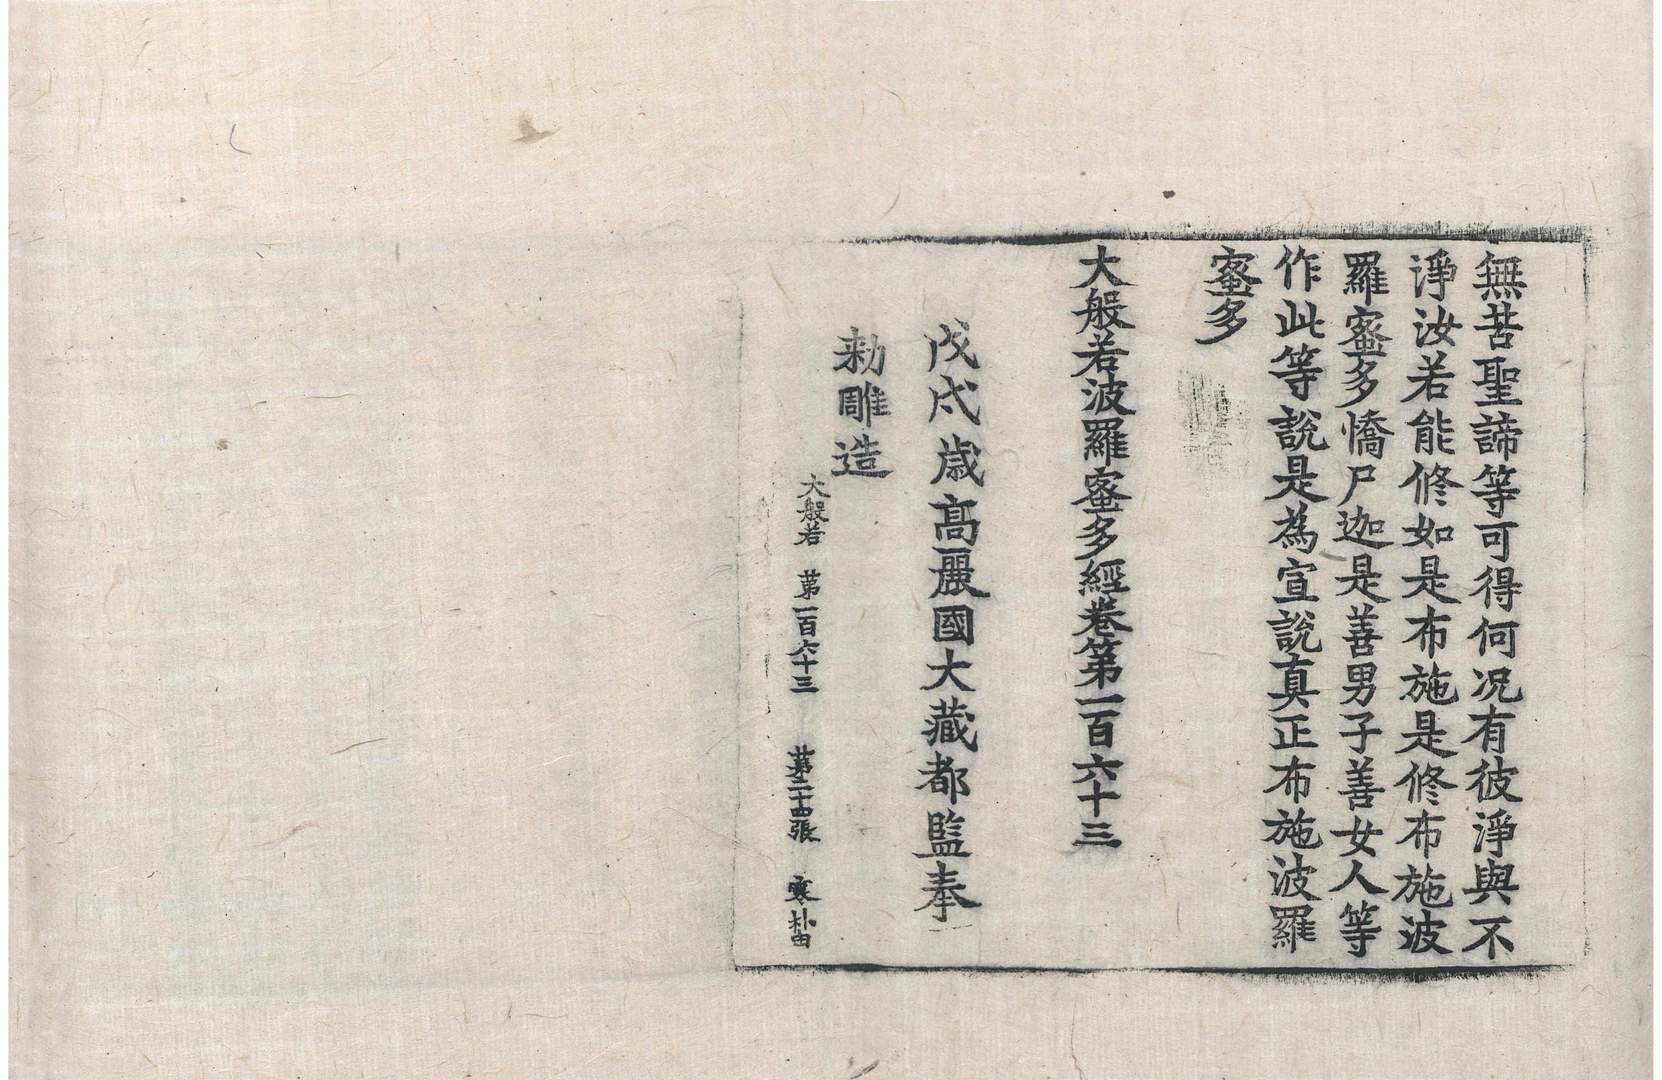 無苦聖諦等可得何况有彼淨與不
淨汝若能修如是布施是修布施波
羅蜜多憍尸迦是善男子善女人等
作此等說是為宣說真正布施波羅
蜜多
大般若波羅蜜多經卷第一百六十三
戊戌歲高麗國大藏都監奉
勅雕造
大般若 第一百六十三 第二十四張 寒 朴由